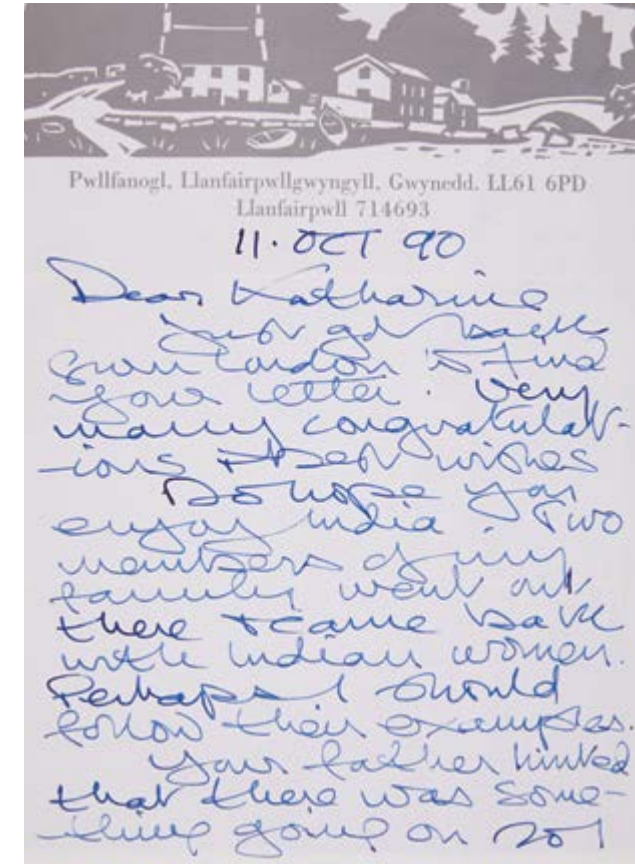 Pwllfanogl, Llanfairpwllgwyngyll, Gwynedd. LL61 6PD
Llanfairpwll 714693
11. OCT 90
Dear Katharine
Just got back
from London to find
your letter. Very
many congratulat-
ions & best wishes
Do hope you
enjoy India. Two
members of my
family went out
there & came back
with Indian women.
Perhaps I should
follow their examples.
Your father hinted
that there was some-
thing going on so I